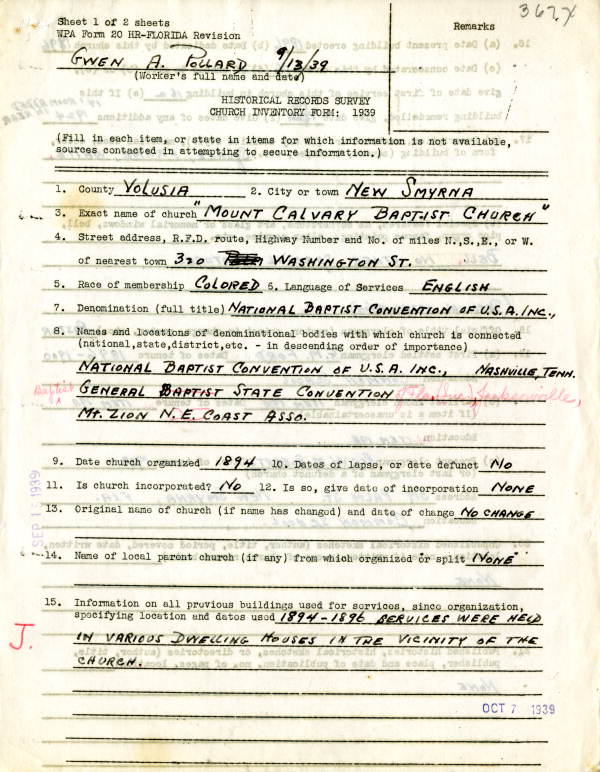 Sheet 1 of 2 sheets
WPA Form 20 HR-FLORIDA Revision
Remarks
3627
GWEN A. POLLARD 9/13/39
(Worker's full name and date)
HISTORICAL RECORDS SURVEY
CHURCH INVENTORY FORM: 1939
(Fill in each item, or state in items for which information is not available,
sources contacted in attempting to secure information.)
1. County VOLUSIA 2. City or town NEW SMYRNA
3. Exact name of church "MOUNT CALVARY BAPTIST CHURCH"
4. Street address, R.F.D. route, Highway Number and No. of miles N.,S.,E., or W.
of nearest town 320 WASHINGTON ST.
5. Race of membership COLORED 6. Language of Services ENGLISH
7. Denomination (full title) NATIONAL BAPTIST CONVENTION OF U.S.A. INC.,
8. Names and locations of denominational bodies with which church is connected
(national,state,district,etc. - in descending order of importance)
NATIONAL BAPTIST CONVENTION OF U.S.A. INC., NASHVILLE, TENN.
Baptist
GENERAL BAPTIST STATE CONVENTION Jacksonville,
MT. ZION N.E. COAST ASSO.
9. Date church organized 1894 10. Dates of lapse, or date defunct NO
11. Is church incorporated? NO 12. Is so, give date of incorporation NONE
13. Original name of church (if name has changed) and date of change NO CHANGE
14. Name of local parent church (if any) from which organized or split "NONE"
15. Information on all previous buildings used for services, since organization,
specifying location and dates used 1894-1896 SERVICES WERE HELD
IN VARIOUS DWELLING HOUSES IN THE VICINITY OF THE
CHURCH.
J.
OCT 7 1939